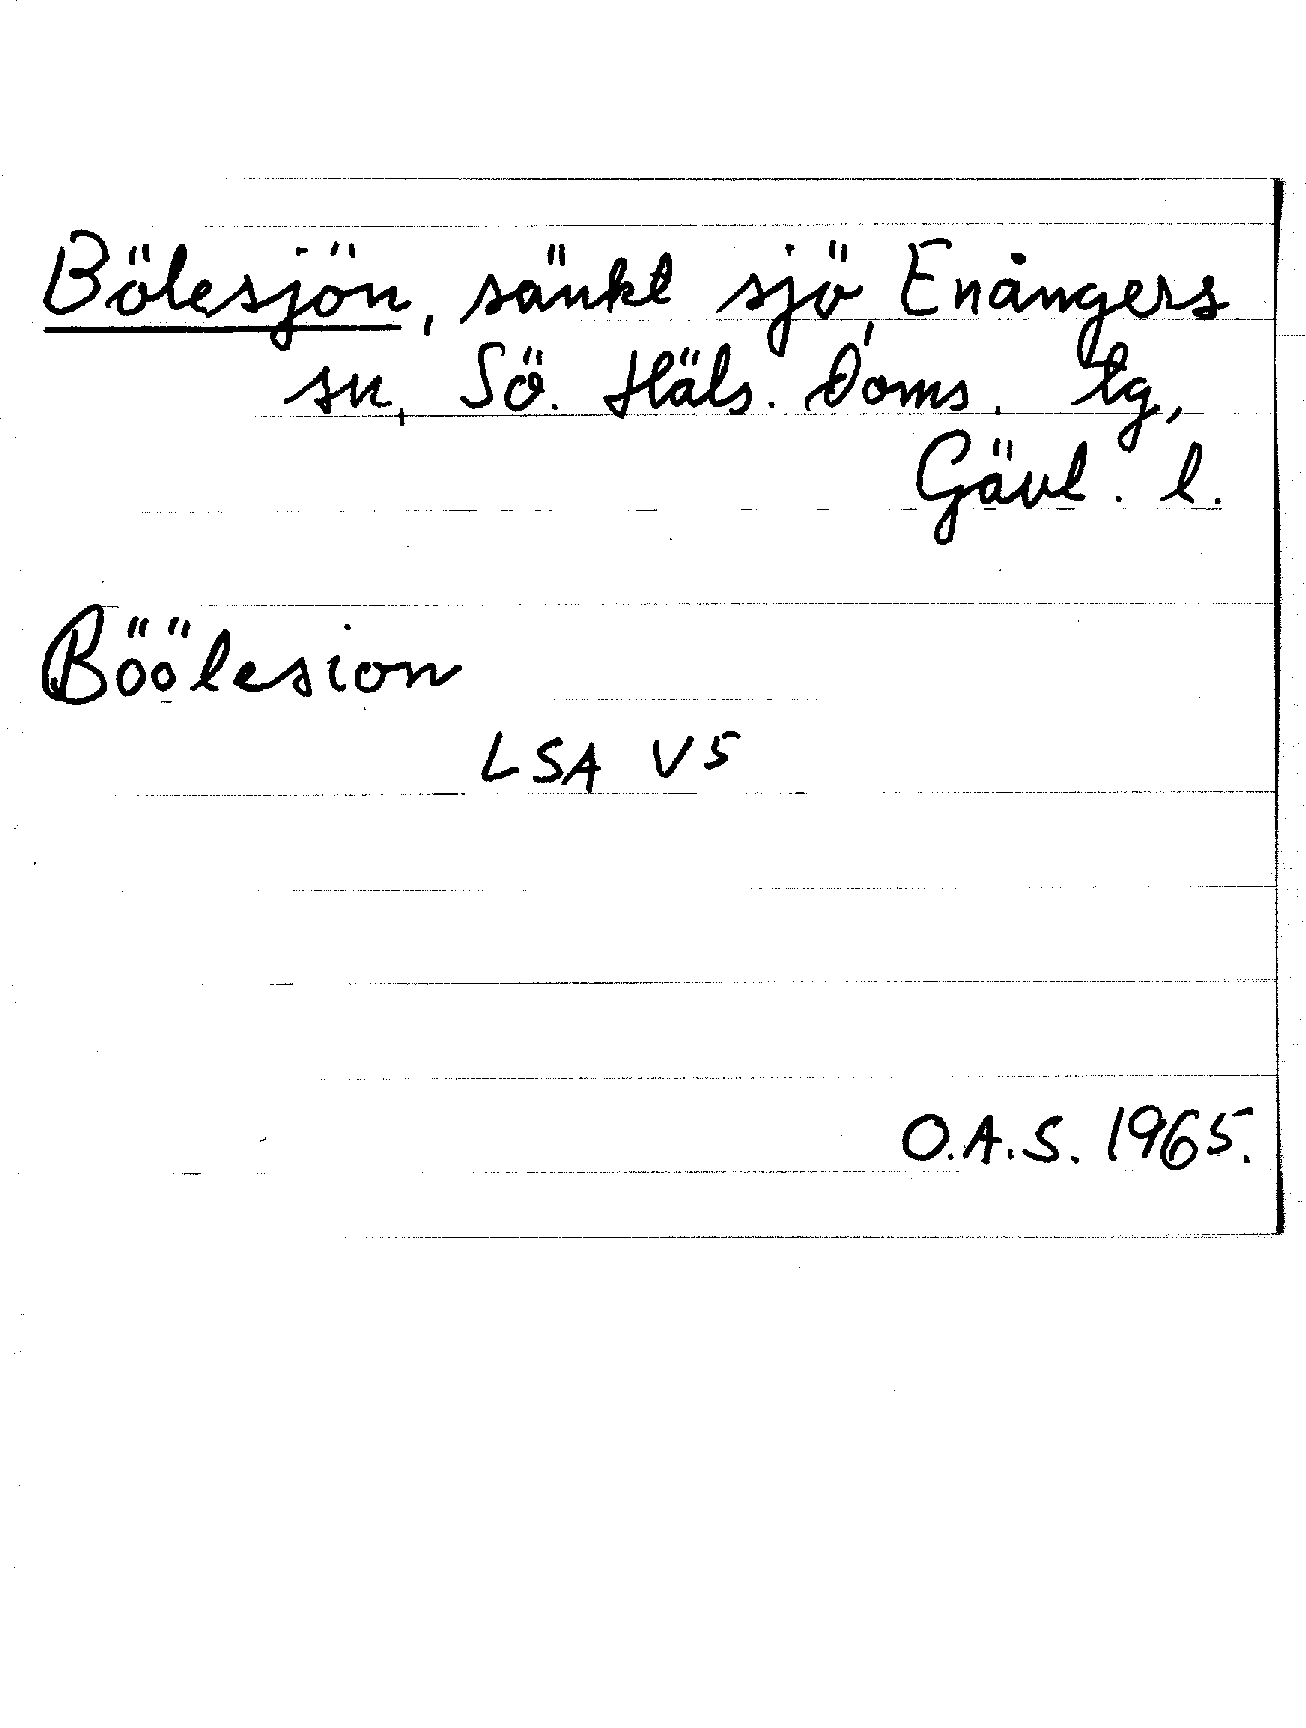 Bölesjön, sänkt sjö, Enångers
sn, Sö. Häls. Doms. lg,
Gävl. l.
Böölesion
LSA V5
O.A.S. 1965.